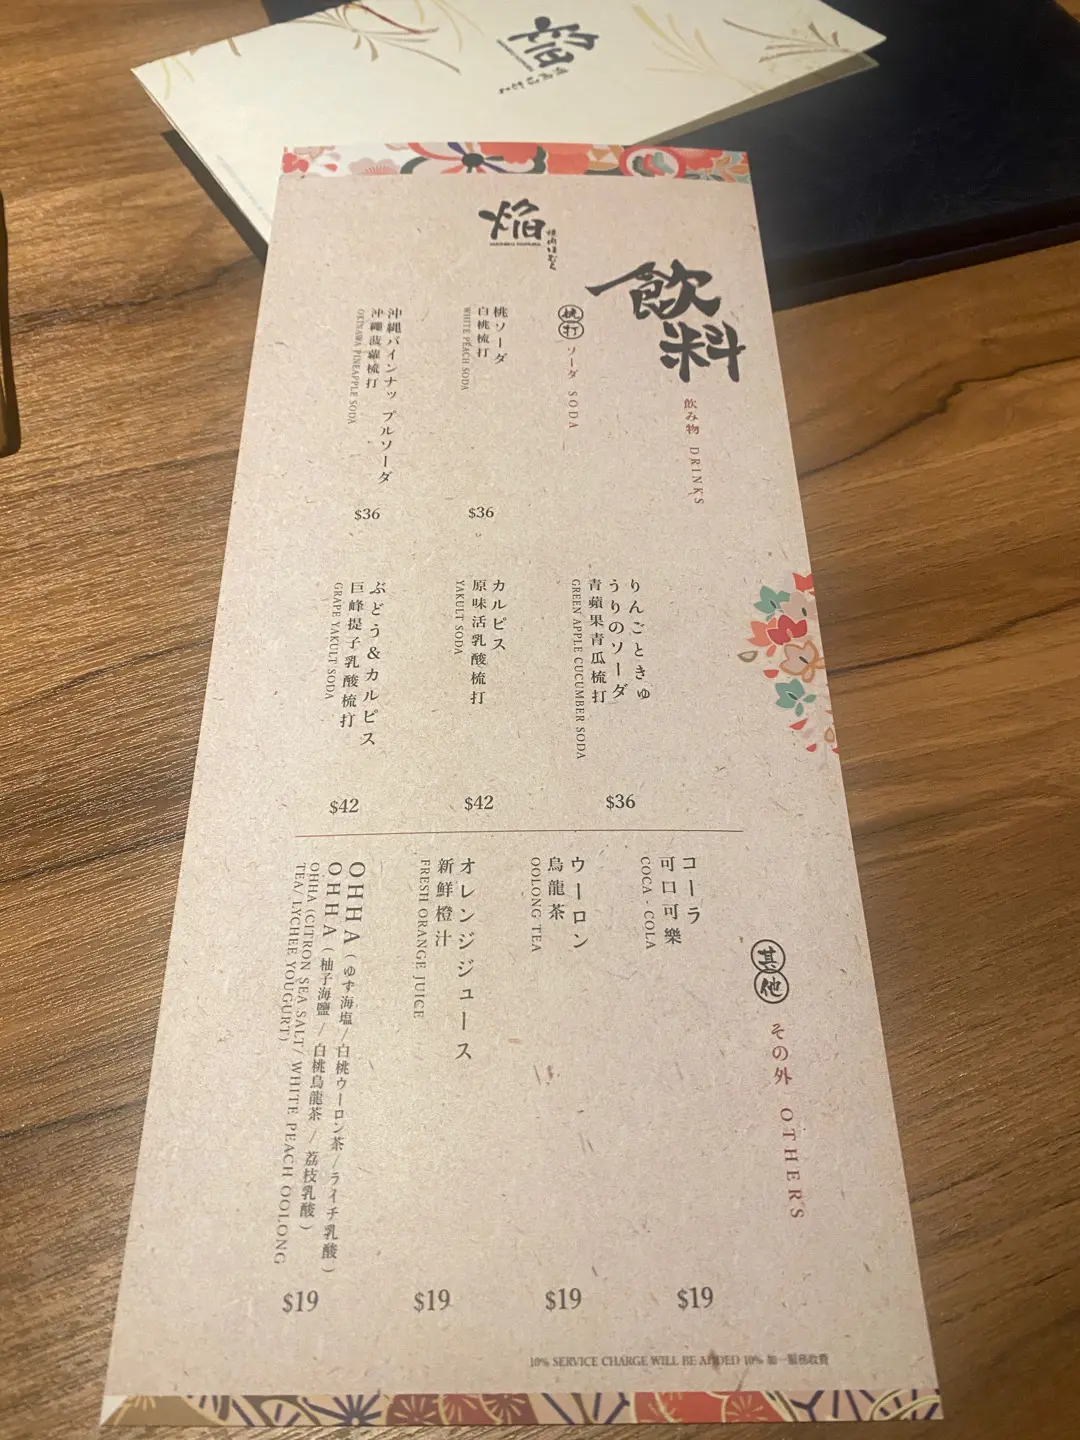 焰
焼肉ほむら
飲料
飲み物 DRINKS
梳打 ソーダ SODA
桃ソーダ
白桃梳打
WHITE PEACH SODA
$36
沖縄パインナップルソーダ
沖繩菠蘿梳打
OKINAWA PINEAPPLE SODA
$36
りんごときゅ
うりのソーダ
青蘋果青瓜梳打
GREEN APPLE CUCUMBER SODA
$36
カルピス
原味活乳酸梳打
YAKULT SODA
$42
ぶどう&カルピス
巨峰提子乳酸梳打
GRAPE YAKULT SODA
$42
其他 その外 OTHERS
コーラ
可口可樂
COCA - COLA
$19
ウーロン
烏龍茶
OOLONG TEA
$19
オレンジジュース
新鮮橙汁
FRESH ORANGE JUICE
$19
OHHA (ゆず海塩/白桃ウーロン茶/ライチ乳酸)
OHHA (柚子海鹽 / 白桃烏龍茶 / 荔枝乳酸)
OHHA (CITRON SEA SALT/ WHITE PEACH OOLONG
TEA/ LYCHEE YOUGURT)
$19
10% SERVICE CHARGE WILL BE ADDED 10% 加一服務收費